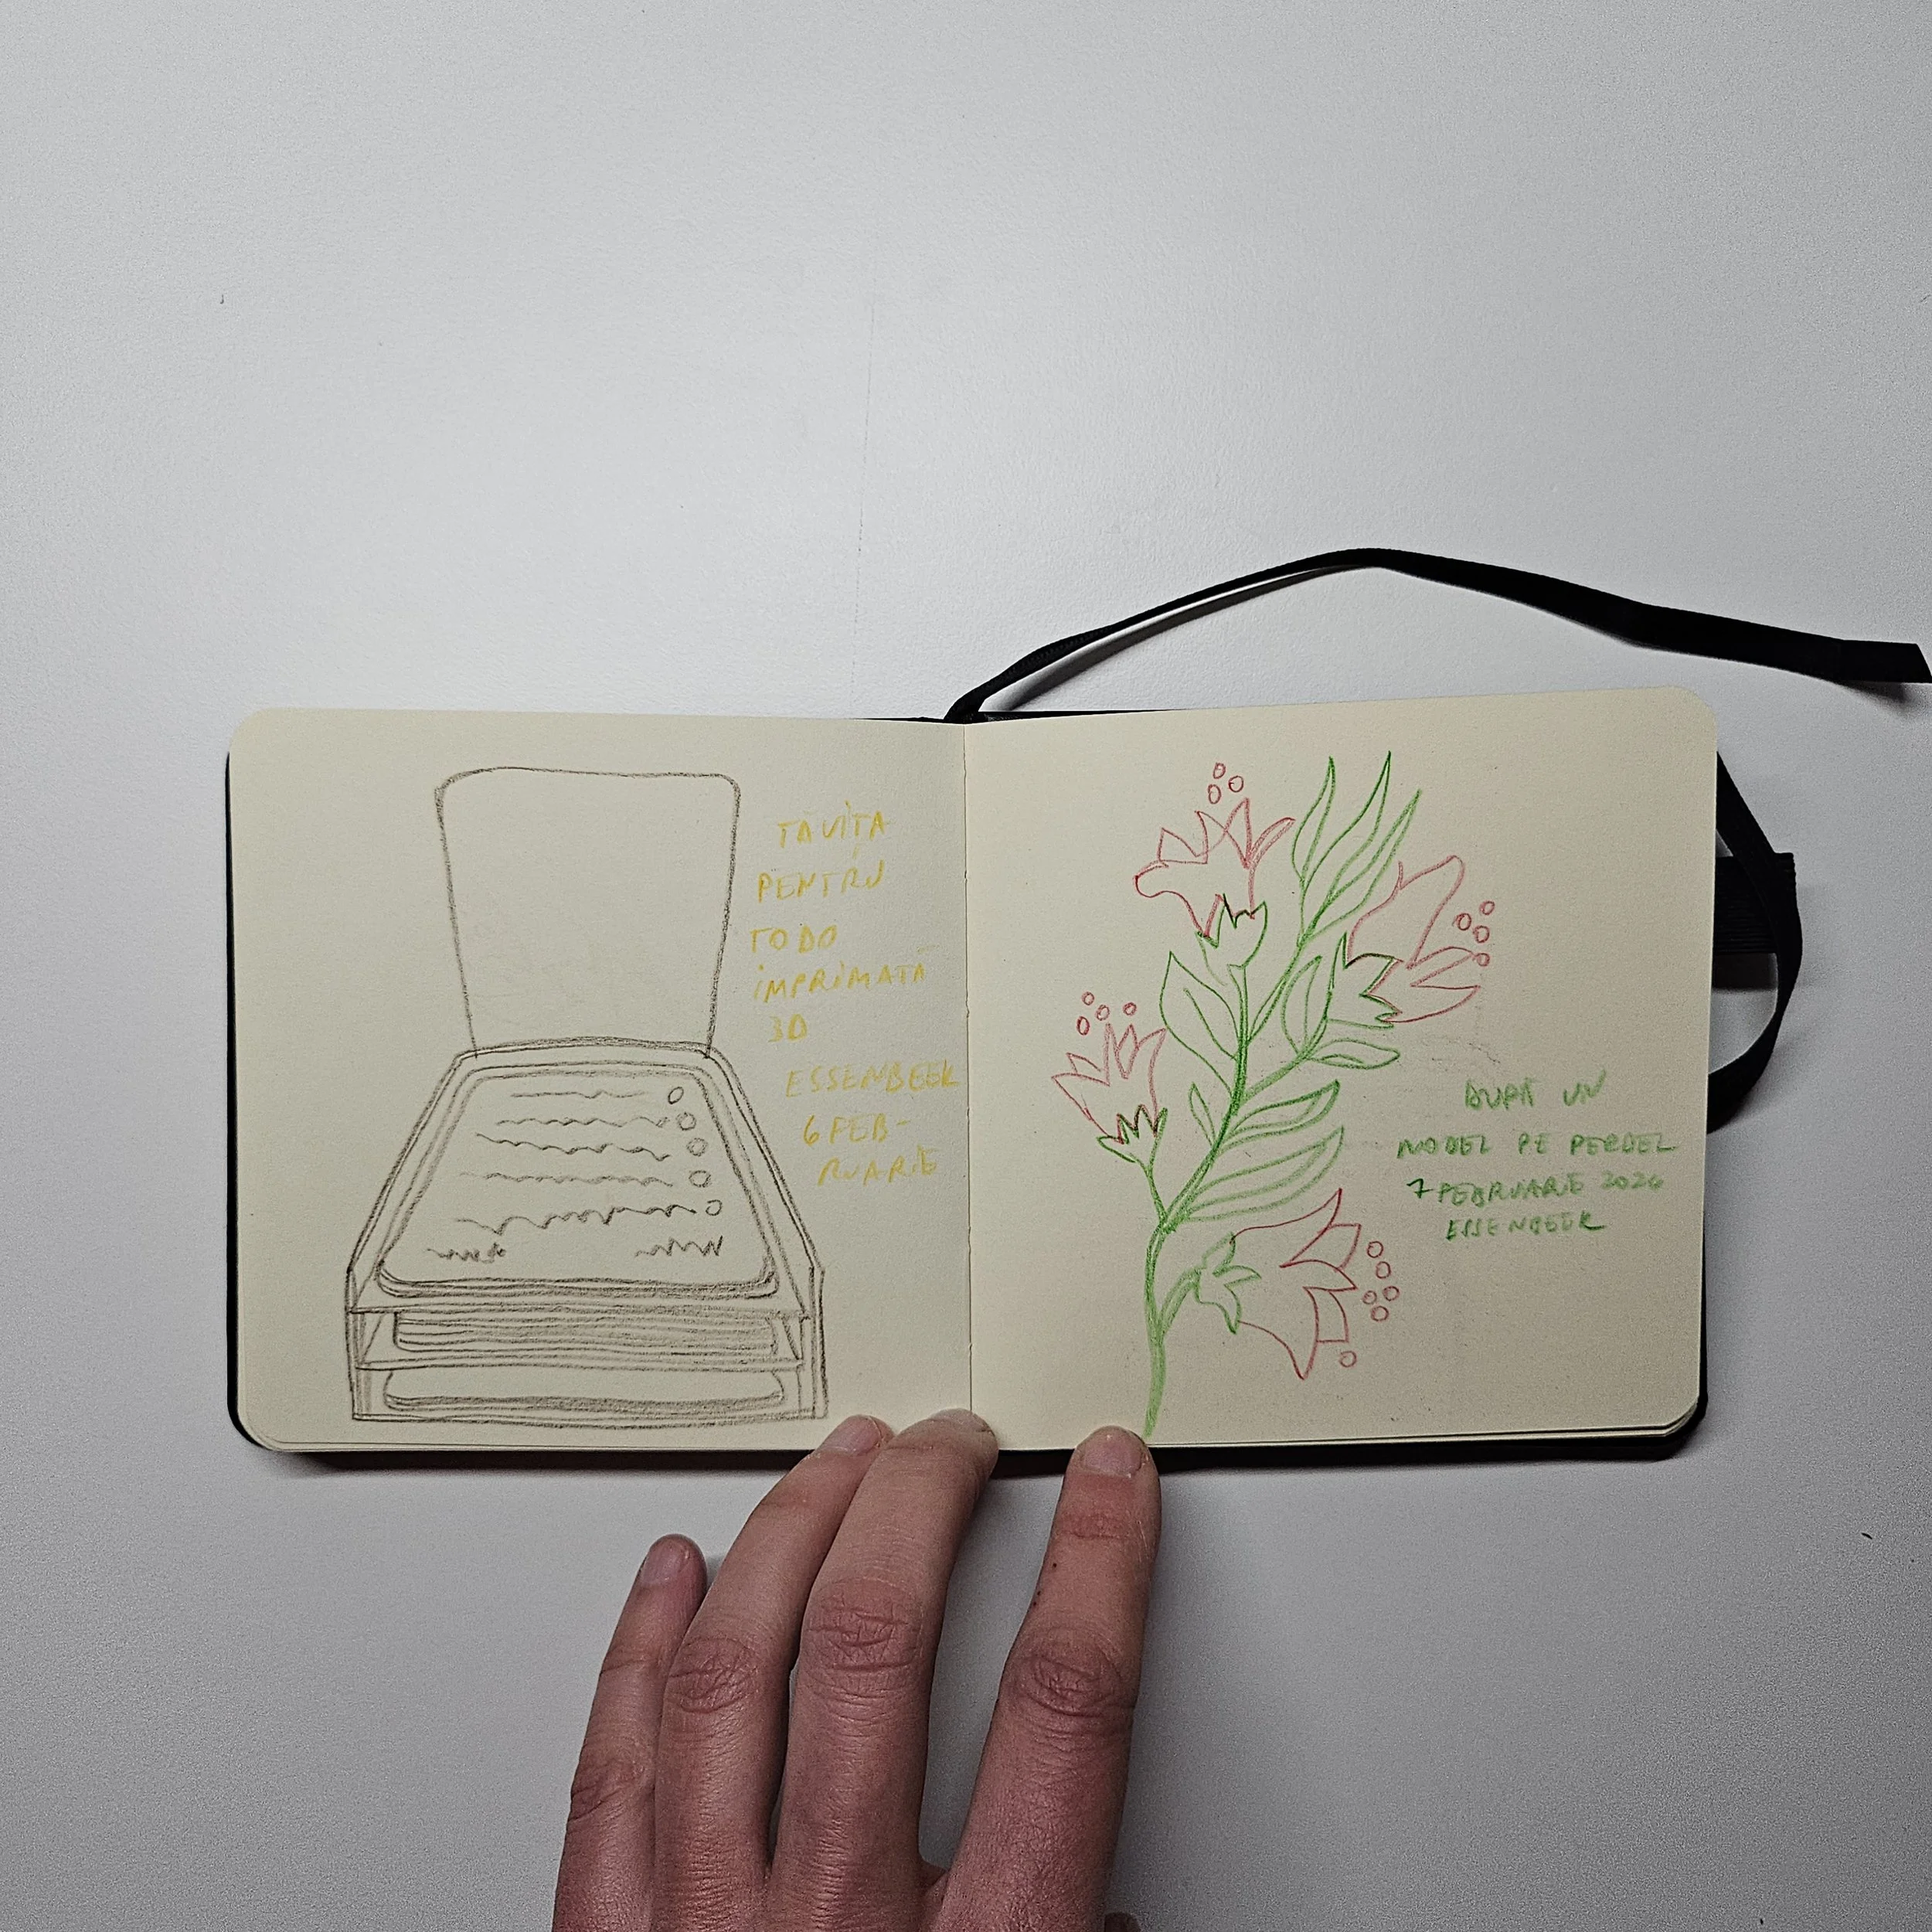 TAVIȚA
PENTRU
TODO
IMPRIMATĂ
3D
ESSENBEEK
6 FEB-
RUARIE
DUPĂ UN
MODEL PE PERDEL
7 FEBRUARIE 2026
ESSENBEEK